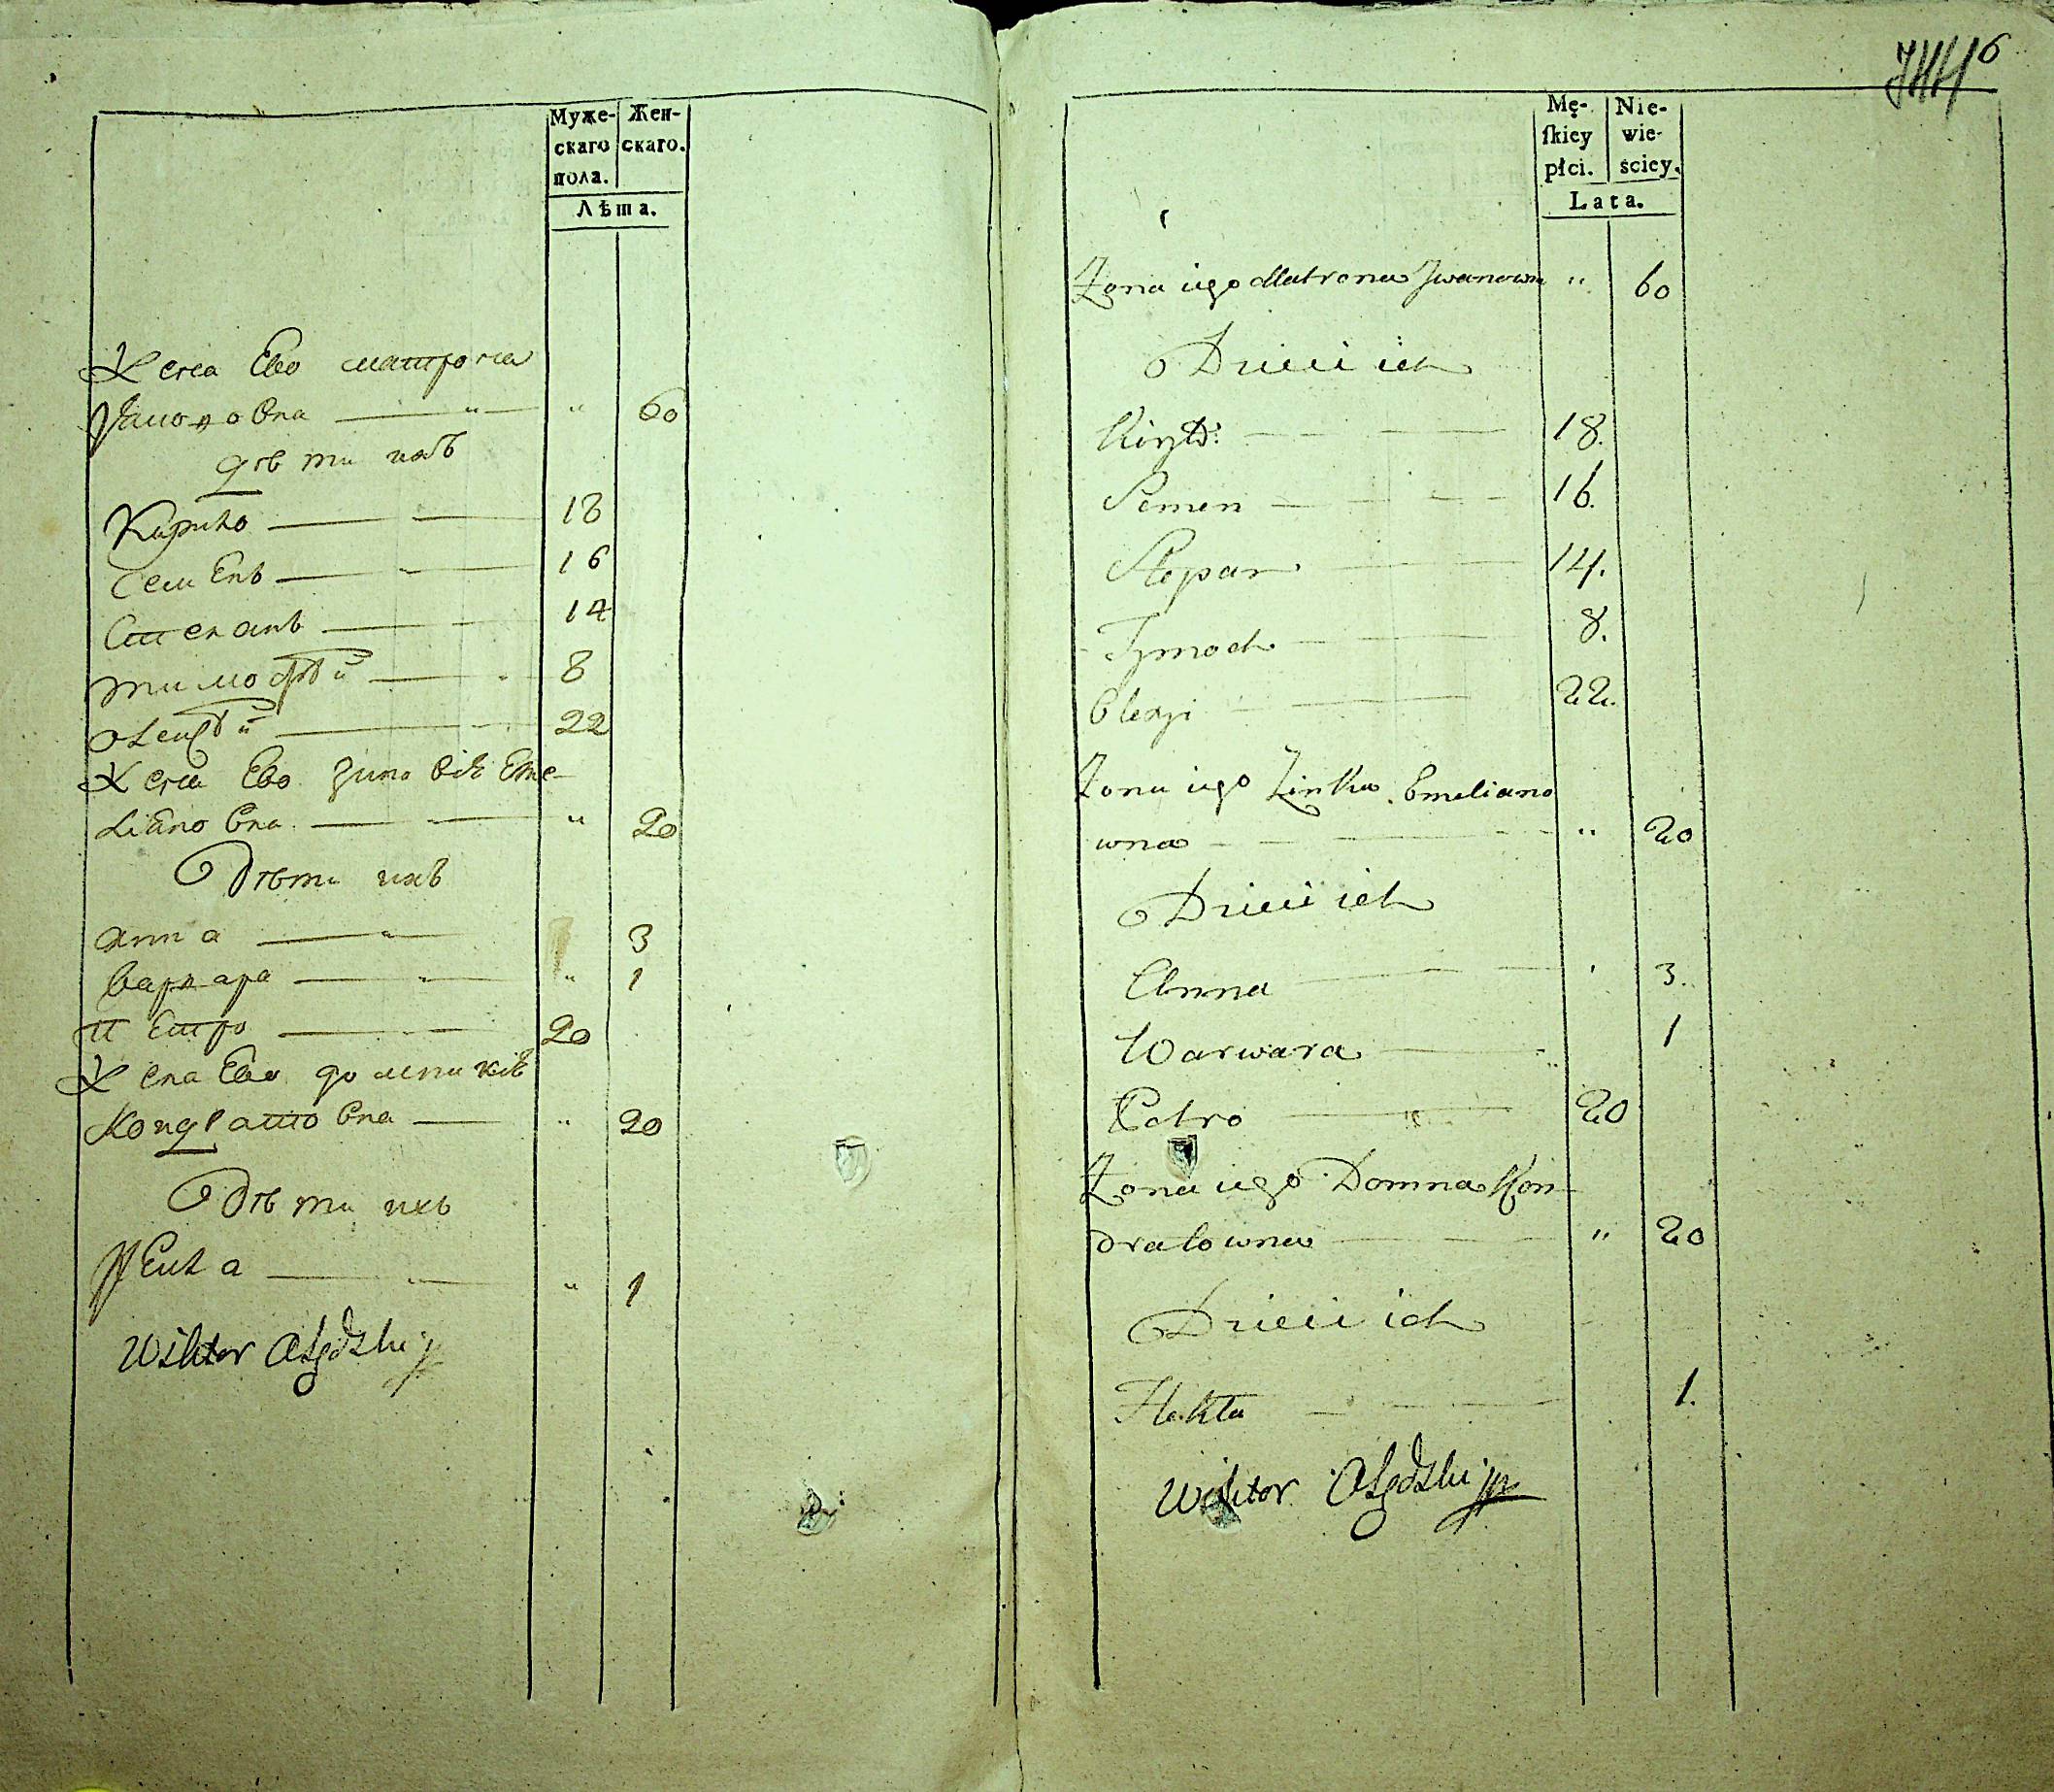 Муже-
скаго
пола.
Жен-
скаго.
Лѣта.
Жена Ево матрона
" 60
дѣти ихъ
Кирило 18
Семенъ 16
Степанъ 14
тимофѣй 8
олексѣй 22
Жена Ево Еме-
лiановна " 20
Дѣти ихъ
анна 3
варвара " 1
петро 20
Жена Ево
Кондратовна " 20
Дѣти ихъ
" 1
Wiktor
6
Mę-
ſkiey
płci.
Nie-
wie-
ściey.
Lata.
Żona iego Matrona Iwanowna " 60
Dzieci ich
18.
Semen 16.
Stepan 14.
Tymoch 8.
Olexyi 22.
Żona iego Zinka Emeliano
wna " 20
Dzieci ich
Anna 3.
Warwara 1
Petro 20
Żona iego Domna Kon-
dratowna " 20
Dzieci ich
1.
Wiktor